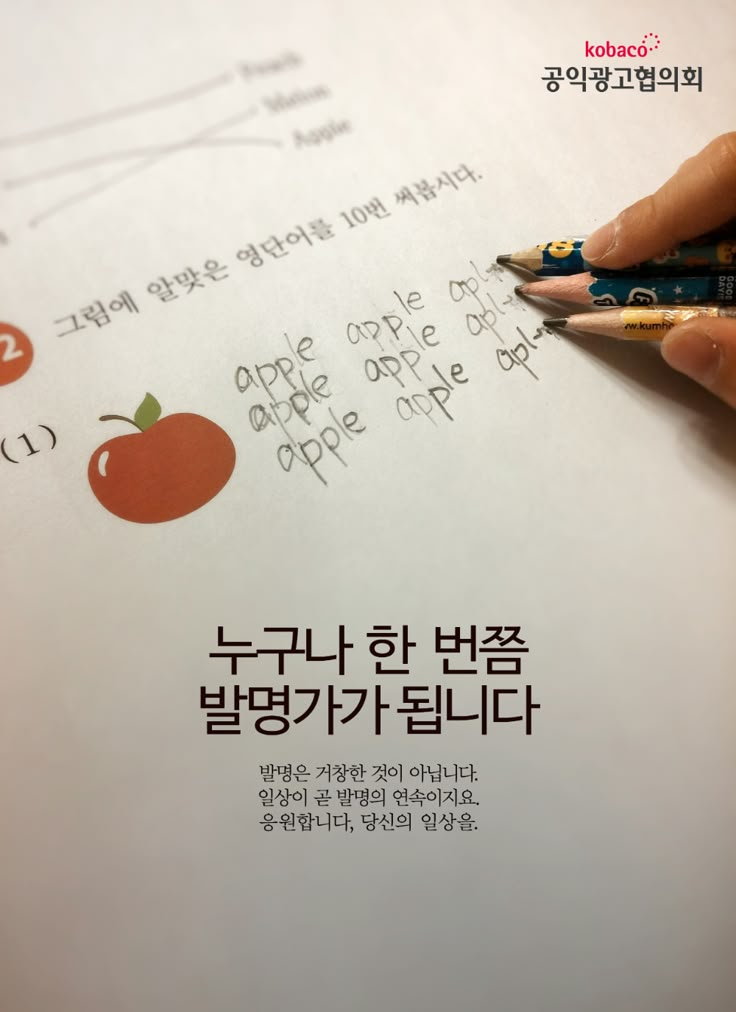 kobaco
공익광고협의회
Peach
Melon
Apple
2
그림에 알맞은 영단어를 10번 써봅시다.
(1)
apple apple apl
apple apple apl
apple apple apl
GOOD DAY
ww.kumho
누구나 한 번쯤
발명가가 됩니다
발명은 거창한 것이 아닙니다.
일상이 곧 발명의 연속이지요.
응원합니다, 당신의 일상을.